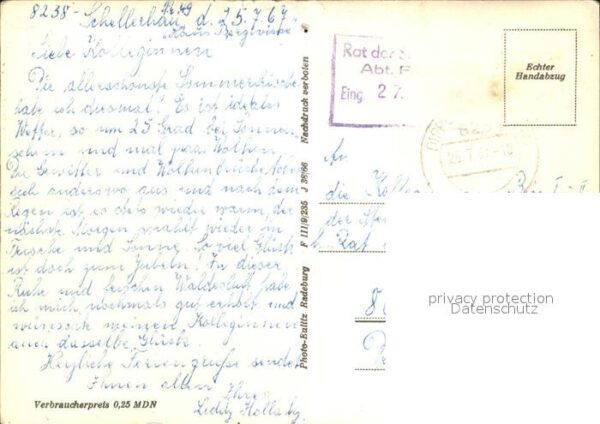 8238 - Schellerhau, d. 25.7.67.
Haus Bergwiese
Liebe Kolleginnen
Die allerschönste Sommerfrische
habe ich diesmal! Es ist ideales
Wetter, so um 25 Grad bei Sonnen-
schein und mal paar Wolken.
Die Gewitter und Wolkenbrüche toben
sich anderswo aus und nach dem
Regen ist es stets wieder warm, der
nächste Morgen strahlt wieder in
Frische und Sonne. So viel Glück
ist doch zum Jubeln! In dieser
Ruhe und frischen Waldesluft habe
ich mich nochmals gut erholt und
wünsche meinen Kolleginnen
auch dasselbe Glück.
Herzliche Feriengrüße sendet
Ihnen allen
Ihre
Verbraucherpreis 0,25 MDN
Photo-Eulitz Radeburg F III/9/235 J 36/66 Nachdruck verboten
Rat der
Abt. F
Eing. 27.
Echter
Handabzug
An
die
der
Rat
privacy protection
Datenschutz